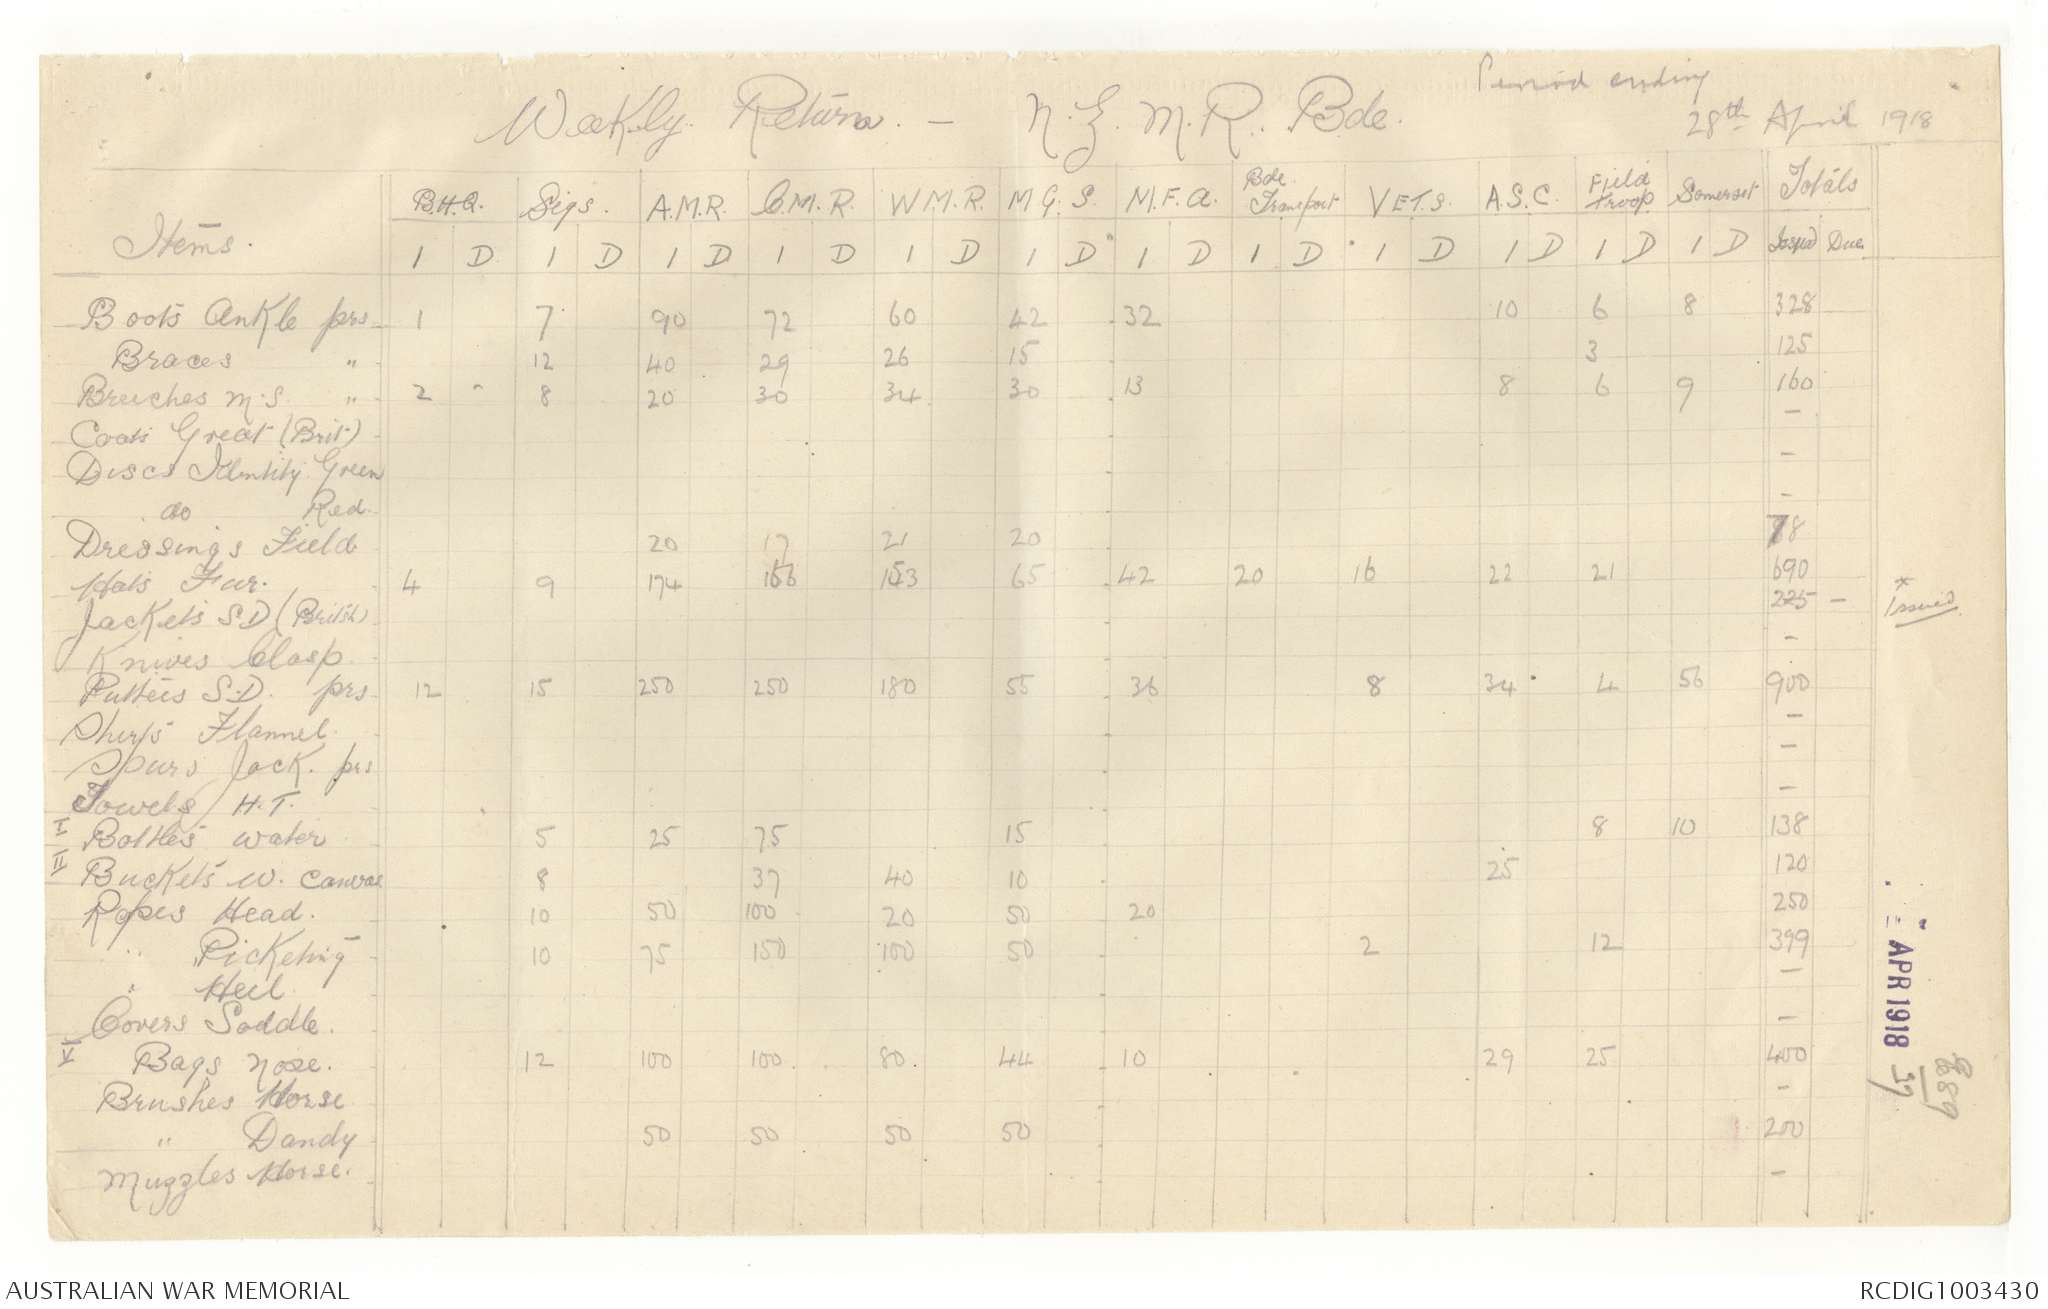 Period ending
Weekly Return. - N.Z. M.R. Bde. 28th April 1918
Items. B.H.Q. Sigs. A.M.R. C.M.R. W.M.R. M.G.S. M.F.A. Bde Transport VETS. A.S.C. Field Troop Somerset Totals
I D I D I D I D I D I D I D I D I D I D I D I D Issued Due
Boots Ankle prs 1 7 90 72 60 42 32 10 6 8 328
Braces " 12 40 29 26 15 3 125
Breeches M.S. " 2 8 20 30 34 30 13 8 6 9 160
Coats Great (Brit) -
Discs Identity Green -
do Red. -
Dressings Field 20 17 21 20 78
Hats Fur. 4 9 174 166 153 65 42 20 16 22 21 690
Jackets S.D (British) 225 - * Issued
Knives Clasp. -
Puttees S.D. prs 12 15 250 250 180 55 36 8 34 4 56 900
Shirts Flannel. -
Spurs Jack. prs -
Towels H.T. -
I Bottles water 5 25 75 15 8 10 138
II Buckets W. Canvas 8 37 40 10 25 120
Ropes Head. 10 50 100 20 50 20 250
" Picketing 10 75 150 100 50 2 12 399
" Heel -
Covers Saddle. -
V Bags nose. 12 100 100 80 44 10 29 25 400
Brushes Horse -
" Dandy 50 50 50 50 200
Muzzles Horse. -
APR 1918
E89
37
AUSTRALIAN WAR MEMORIAL RCDIG1003430